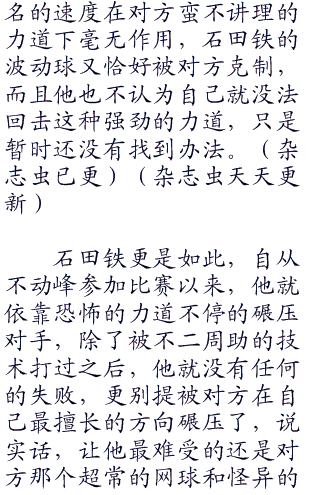 名的速度在对方蛮不讲理的
力道下毫无作用，石田铁的
波动球又恰好被对方克制，
而且他也不认为自己就没法
回击这种强劲的力道，只是
暂时还没有找到办法。（杂
志虫已更）（杂志虫天天更
新）
石田铁更是如此，自从
不动峰参加比赛以来，他就
依靠恐怖的力道不停的碾压
对手，除了被不二周助的技
术打过之后，他就没有任何
的失败，更别提被对方在自
己最擅长的方向碾压了，说
实话，让他最难受的还是对
方那个超常的网球和怪异的